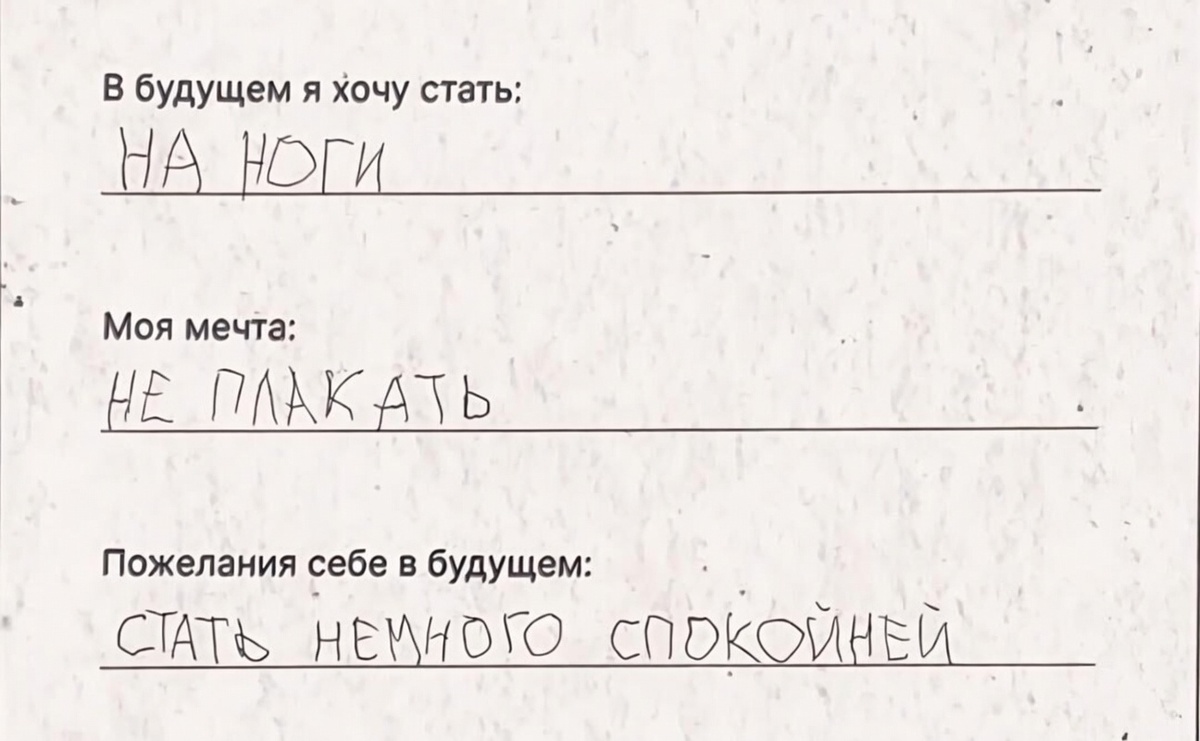 В будущем я хочу стать:
НА НОГИ
Моя мечта:
НЕ ПЛАКАТЬ
Пожелания себе в будущем:
СТАТЬ НЕМНОГО СПОКОЙНЕЙ